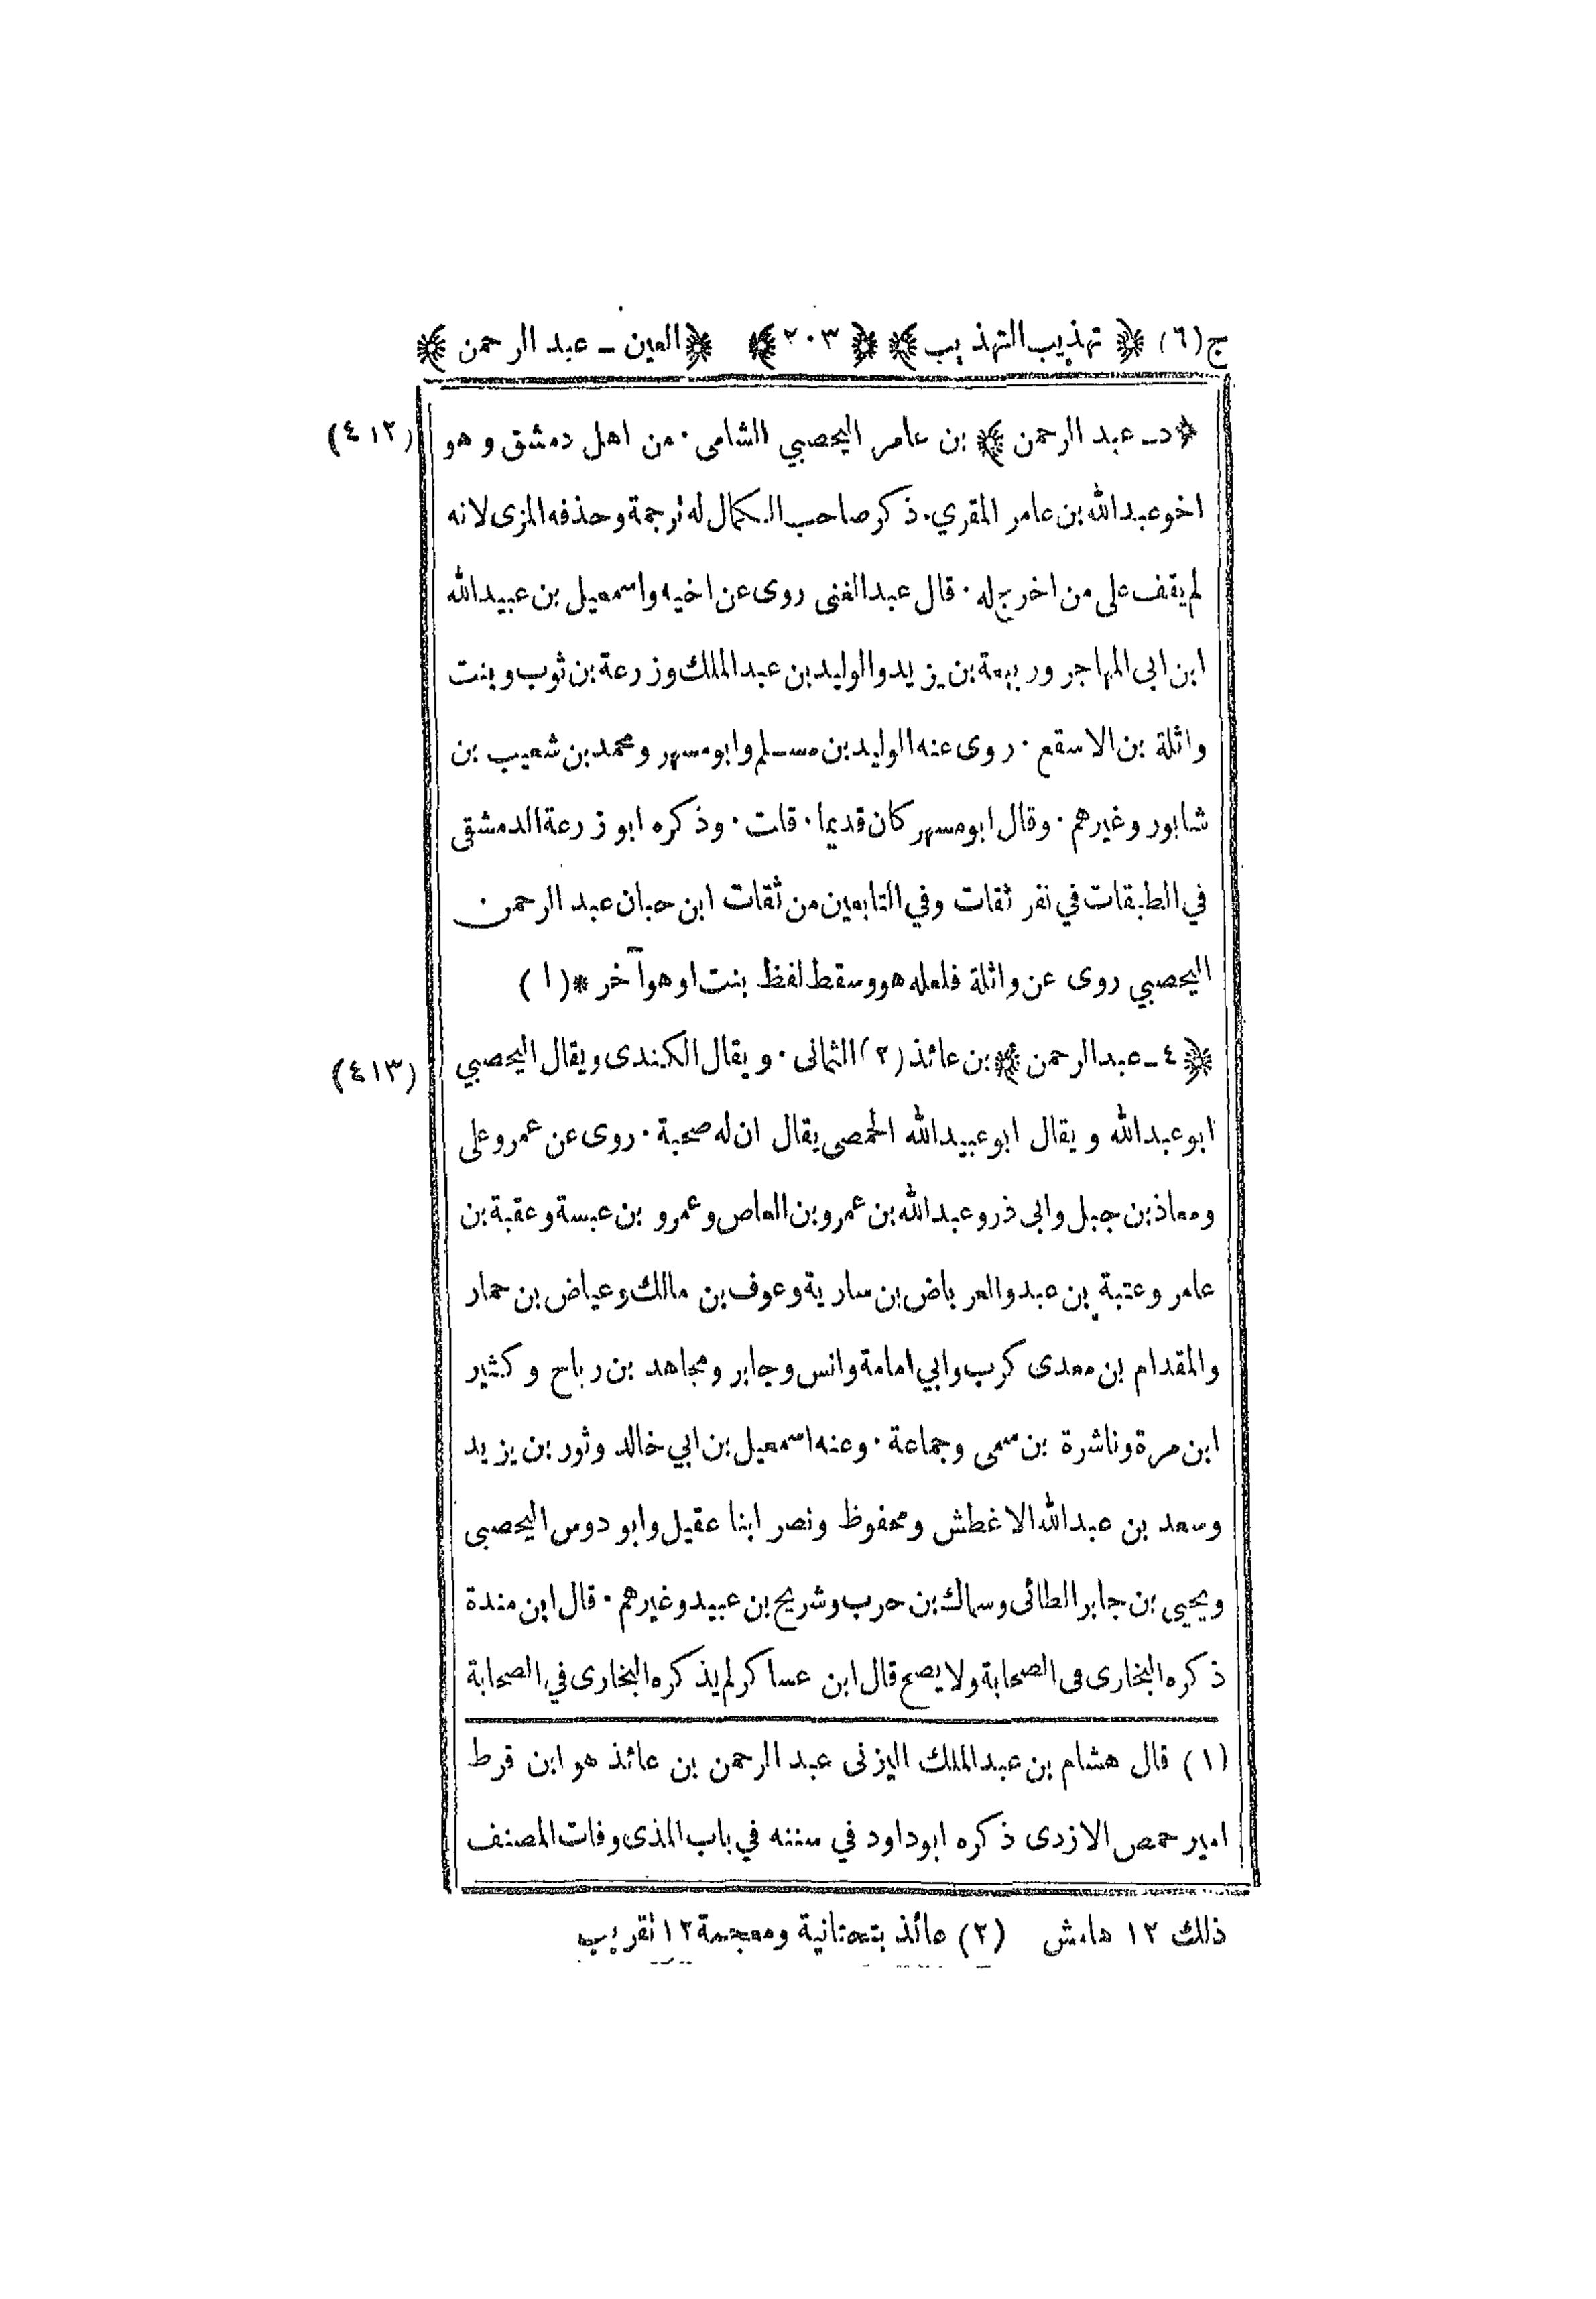 ج(٦) ﴿ تهذيب التهذيب ﴾ ﴿ ٢٠٣ ﴾ ﴿ العين ـ عبد الرحمن ﴾
﴿ د ـ عبد الرحمن ﴾ بن عامر اليحصبي الشامى ٠ من اهل دمشق و هو (٤١٢)
اخو عبدالله بن عامر المقري ٠ ذكر صاحب الكمال له ترجمة وحذفه المزى لانه
لم يقف على من اخرج له ٠ قال عبدالغنى روى عن اخيه واسمعيل بن عبيدالله
ابن ابى المهاجر وربيعة بن يزيد والوليد بن عبدالملك وزرعة بن ثوب وبنت
واثلة بن الاسقع ٠ روى عنه الوليد بن مسلم وابو مسهر ومحمد بن شعيب بن
شابور وغيرهم ٠ وقال ابو مسهر كان قديما ٠ قلت ٠ وذكره ابو زرعة الدمشقى
في الطبقات في نفر ثقات وفي التابعين من ثقات ابن حبان عبد الرحمن
اليحصبي روى عن واثلة فلعله هو وسقط لفظ بنت او هو آخر *(١)
﴿ ٤ ـ عبد الرحمن ﴾ بن عائذ (٢) الثمالى ٠ ويقال الكندى ويقال اليحصبي (٤١٣)
ابو عبدالله و يقال ابو عبيدالله الحمصى يقال ان له صحبة ٠ روى عن عمر وعلى
ومعاذ بن جبل وابى ذر وعبدالله بن عمرو بن العاص وعمرو بن عبسة وعقبة بن
عامر وعتبة بن عبد والعرباض بن سارية وعوف بن مالك وعياض بن حمار
والمقدام بن معدى كرب وابي امامة وانس وجابر ومجاهد بن رباح وكثير
ابن مرة وناشرة بن سمى وجماعة ٠ وعنه اسمعيل بن ابي خالد وثور بن يزيد
وسعد بن عبدالله الاغطش ومحفوظ ونصر ابنا عقيل وابو دوس اليحصبى
ويحيى بن جابر الطائى وسماك بن حرب وشريح بن عبيد وغيرهم ٠ قال ابن مندة
ذكره البخارى فى الصحابة ولا يصح قال ابن عساكر لم يذكره البخارى في الصحابة
(١) قال هشام بن عبدالملك اليزنى عبد الرحمن بن عائذ هو ابن قرط
امير حمص الازدى ذكره ابو داود في سننه في باب المذى وفات المصنف
ذلك ١٢ هامش (٢) عائذ بتحتانية ومعجمة ١٢ تقريب